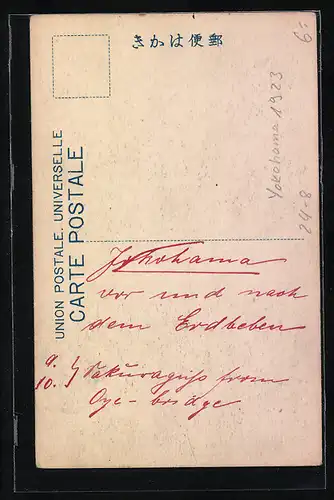 きかは便郵
UNION POSTALE. UNIVERSELLE
CARTE POSTALE
6:-
Yokohama 1923
24-8
Yokohama
vor und nach
dem Erdbeben
9. } Sakuragiso from
10. } Oye-bridge